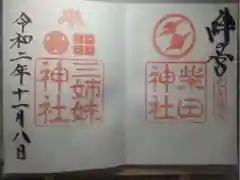 拝宮
柴田
神社
奉
三姉妹
神社
令和二年十一月八日